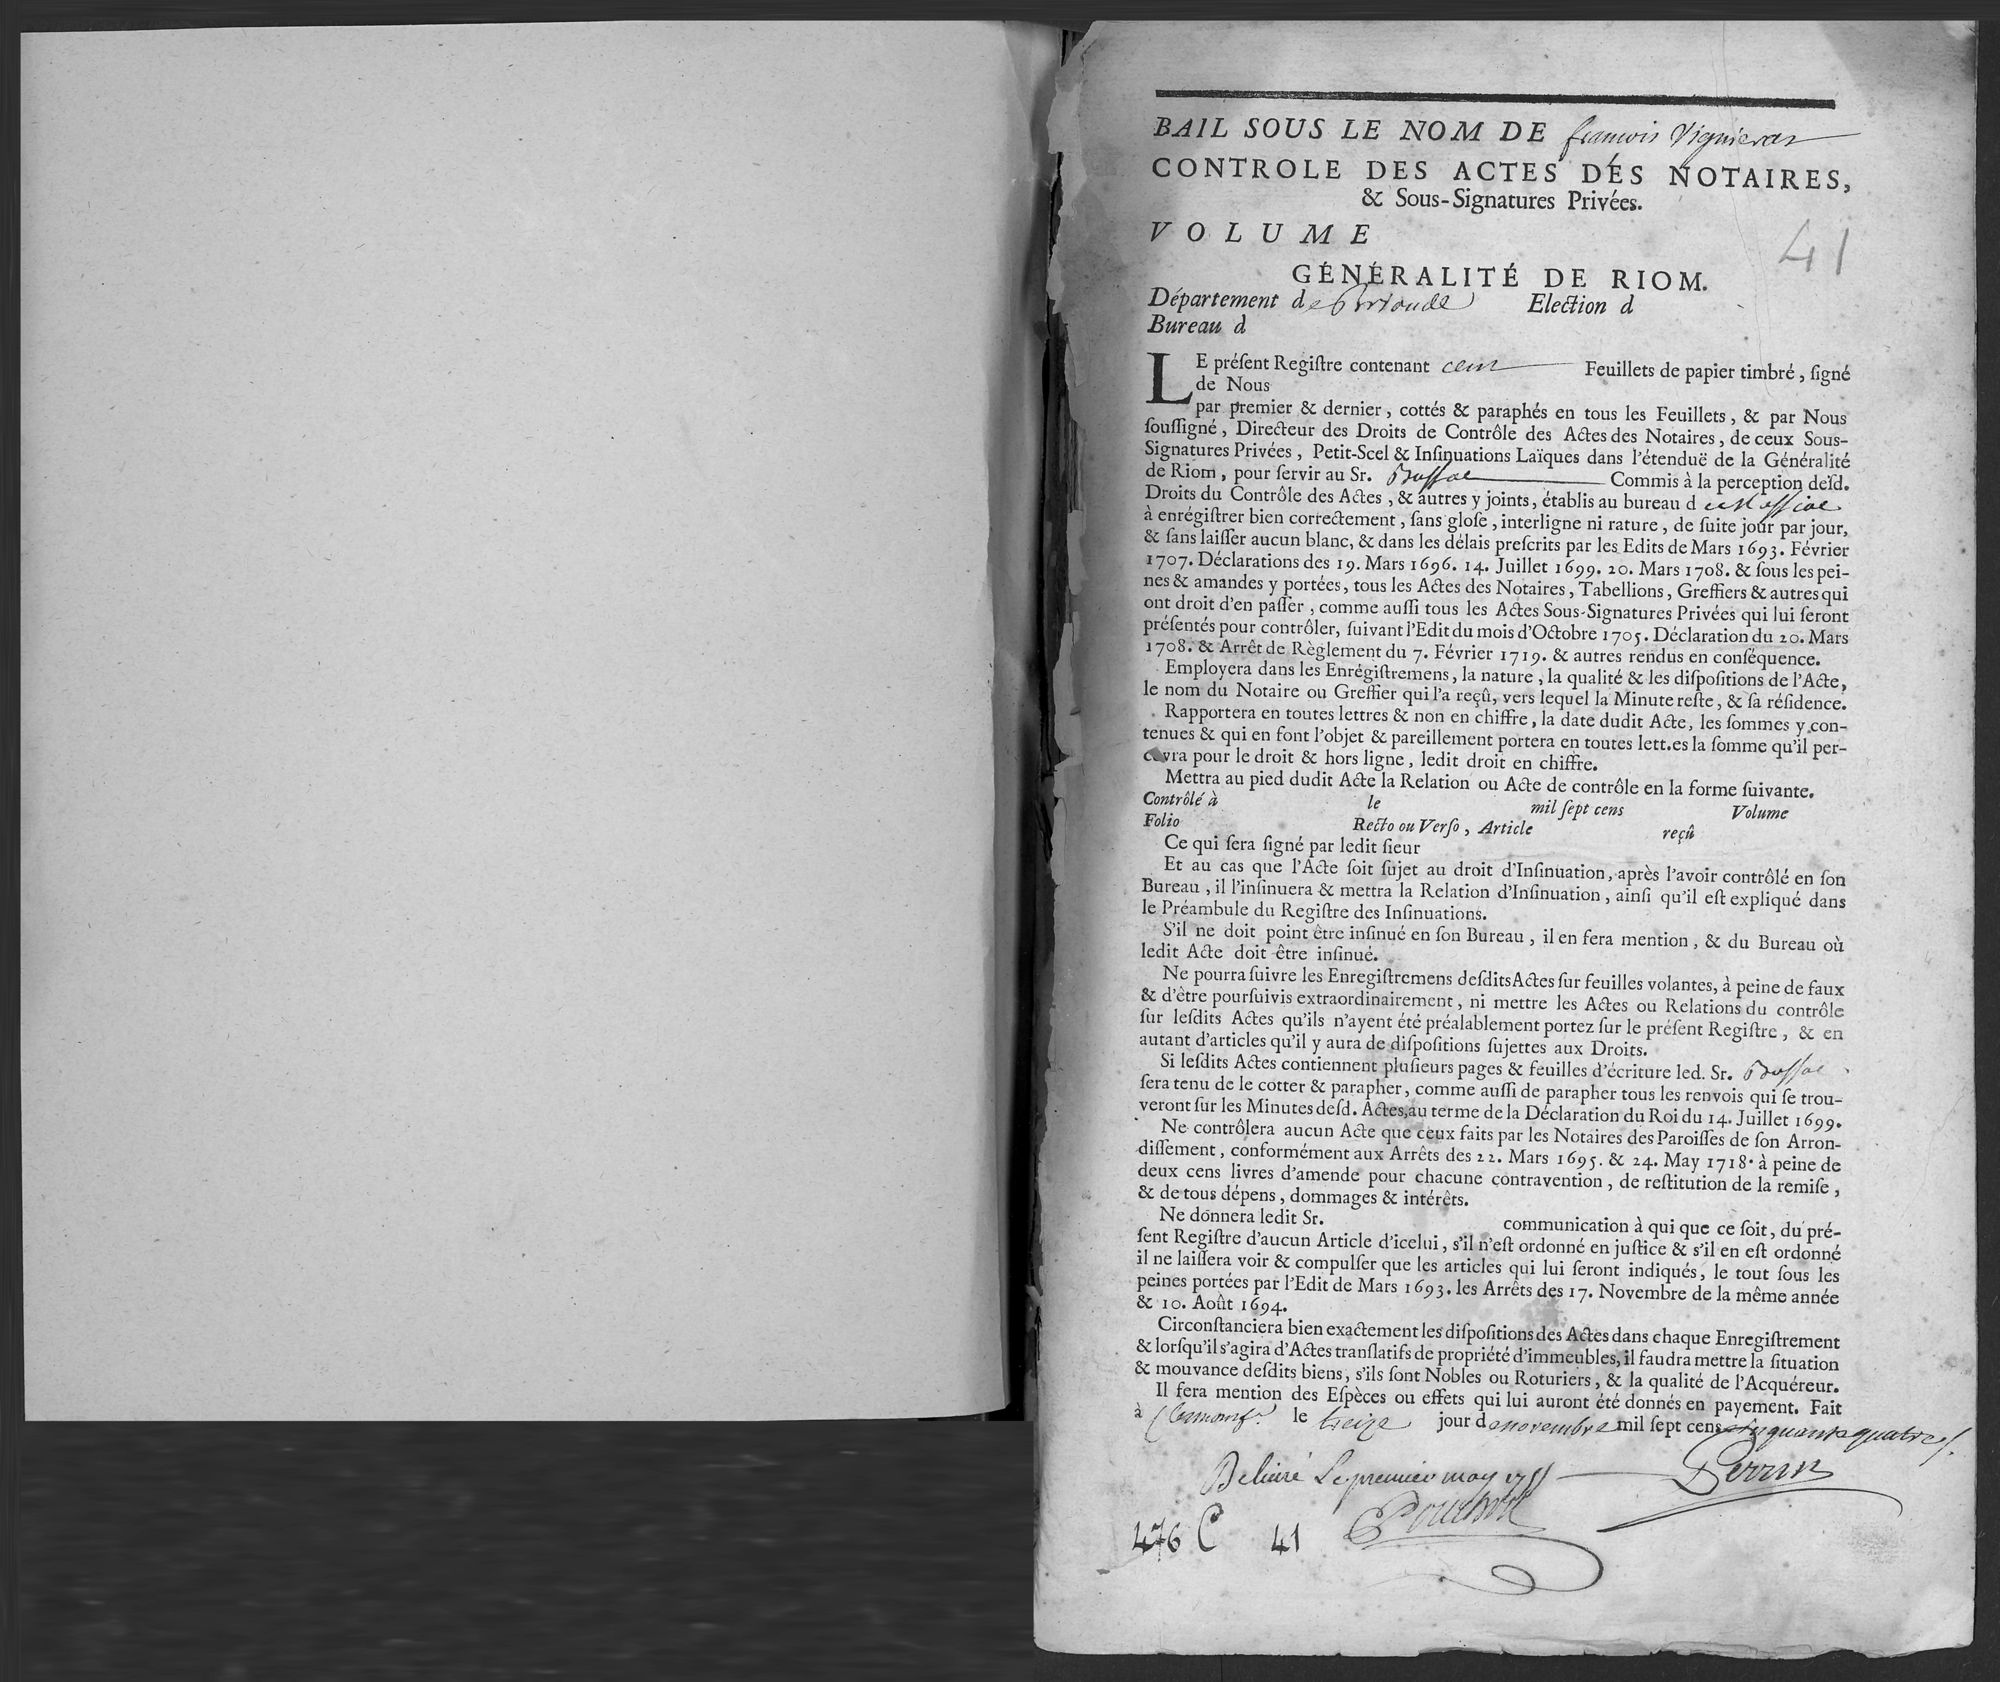 BAIL SOUS LE NOM DE francois Vignieras
CONTROLE DES ACTES DÉS NOTAIRES,
& Sous-Signatures Privées.
VOLUME
41
GÉNÉRALITÉ DE RIOM.
Département de Brioude Election d
Bureau d
LE préſent Regiſtre contenant cent Feuillets de papier timbré, ſigné
de Nous
par premier & dernier, cottés & paraphés en tous les Feuillets, & par Nous
ſouſſigné, Directeur des Droits de Contrôle des Actes des Notaires, de ceux Sous-
Signatures Privées, Petit-Scel & Inſinuations Laïques dans l'étenduë de la Généralité
de Riom, pour ſervir au Sr. Commis à la perception deſd.
Droits du Contrôle des Actes, & autres y joints, établis au bureau d
à enrégiſtrer bien correctement, ſans gloſe, interligne ni rature, de ſuite jour par jour,
& ſans laiſſer aucun blanc, & dans les délais preſcrits par les Edits de Mars 1693. Février
1707. Déclarations des 19. Mars 1696. 14. Juillet 1699. 20. Mars 1708. & ſous les pei-
nes & amandes y portées, tous les Actes des Notaires, Tabellions, Greffiers & autres qui
ont droit d'en paſſer, comme auſſi tous les Actes Sous-Signatures Privées qui lui ſeront
préſentés pour contrôler, ſuivant l'Edit du mois d'Octobre 1705. Déclaration du 20. Mars
1708. & Arrêt de Règlement du 7. Février 1719. & autres rendus en conſéquence.
Employera dans les Enrégiſtremens, la nature, la qualité & les diſpoſitions de l'Acte,
le nom du Notaire ou Greffier qui l'a reçû, vers lequel la Minute reſte, & ſa réſidence.
Rapportera en toutes lettres & non en chiffre, la date dudit Acte, les ſommes y con-
tenues & qui en font l'objet & pareillement portera en toutes lett.es la ſomme qu'il per-
cevra pour le droit & hors ligne, ledit droit en chiffre.
Mettra au pied dudit Acte la Relation ou Acte de contrôle en la forme ſuivante.
Contrôlé à le mil ſept cens Volume
Folio Recto ou Verſo, Article reçû
Ce qui ſera ſigné par ledit ſieur
Et au cas que l'Acte ſoit ſujet au droit d'Inſinuation, après l'avoir contrôlé en ſon
Bureau, il l'inſinuera & mettra la Relation d'Inſinuation, ainſi qu'il eſt expliqué dans
le Préambule du Regiſtre des Inſinuations.
S'il ne doit point être inſinué en ſon Bureau, il en fera mention, & du Bureau où
ledit Acte doit être inſinué.
Ne pourra ſuivre les Enregiſtremens deſdits Actes ſur feuilles volantes, à peine de faux
& d'être pourſuivis extraordinairement, ni mettre les Actes ou Relations du contrôle
ſur leſdits Actes qu'ils n'ayent été préalablement portez ſur le préſent Regiſtre, & en
autant d'articles qu'il y aura de diſpoſitions ſujettes aux Droits.
Si leſdits Actes contiennent pluſieurs pages & feuilles d'écriture led. Sr.
ſera tenu de le cotter & parapher, comme auſſi de parapher tous les renvois qui ſe trou-
veront ſur les Minutes deſd. Actes, au terme de la Déclaration du Roi du 14. Juillet 1699.
Ne contrôlera aucun Acte que ceux faits par les Notaires des Paroiſſes de ſon Arron-
diſſement, conformément aux Arrêts des 22. Mars 1695. & 24. May 1718. à peine de
deux cens livres d'amende pour chacune contravention, de reſtitution de la remiſe,
& de tous dépens, dommages & intérêts.
Ne donnera ledit Sr. communication à qui que ce ſoit, du pré-
ſent Regiſtre d'aucun Article d'icelui, s'il n'eſt ordonné en juſtice & s'il en eſt ordonné
il ne laiſſera voir & compulſer que les articles qui lui ſeront indiqués, le tout ſous les
peines portées par l'Edit de Mars 1693. les Arrêts des 17. Novembre de la même année
& 10. Août 1694.
Circonſtanciera bien exactement les diſpoſitions des Actes dans chaque Enregiſtrement
& lorſqu'il s'agira d'Actes tranſlatifs de propriété d'immeubles, il faudra mettre la ſituation
& mouvance deſdits biens, s'ils ſont Nobles ou Roturiers, & la qualité de l'Acquéreur.
Il fera mention des Eſpèces ou effets qui lui auront été donnés en payement. Fait
à Clermont le treize jour de novembre mil ſept cens cinquante quatre
Delivré Le premier may 1755 Perrin
476 C 41